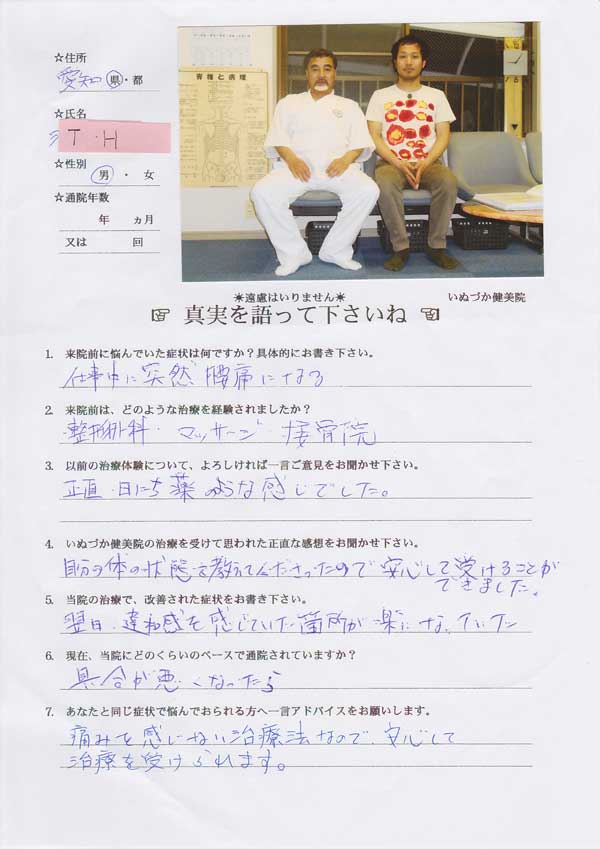 ☆住所
愛知 県・都
☆氏名
T・H
☆性別
男 ・ 女
☆通院年数
年 ヵ月
又は 回
背椎と病理
☀遠慮はいりません☀ いぬづか健美院
☞ 真実を語って下さいね ☜
1. 来院前に悩んでいた症状は何ですか？具体的にお書き下さい。
仕事中に突然腰痛になる
2. 来院前は、どのような治療を経験されましたか？
整形外科・マッサージ・接骨院
3. 以前の治療体験について、よろしければ一言ご意見をお聞かせ下さい。
正直・日にち薬のような感じでした。
4. いぬづか健美院の治療を受けて思われた正直な感想をお聞かせ下さい。
自分の体の状態を教えてくださったので安心して受けることが
できました。
5. 当院の治療で、改善された症状をお書き下さい。
翌日、違和感を感じていた箇所が楽になっていた
6. 現在、当院にどのくらいのペースで通院されていますか？
具合が悪くなったら
7. あなたと同じ症状で悩んでおられる方へ一言アドバイスをお願いします。
痛みを感じない治療法なので、安心して
治療を受けられます。